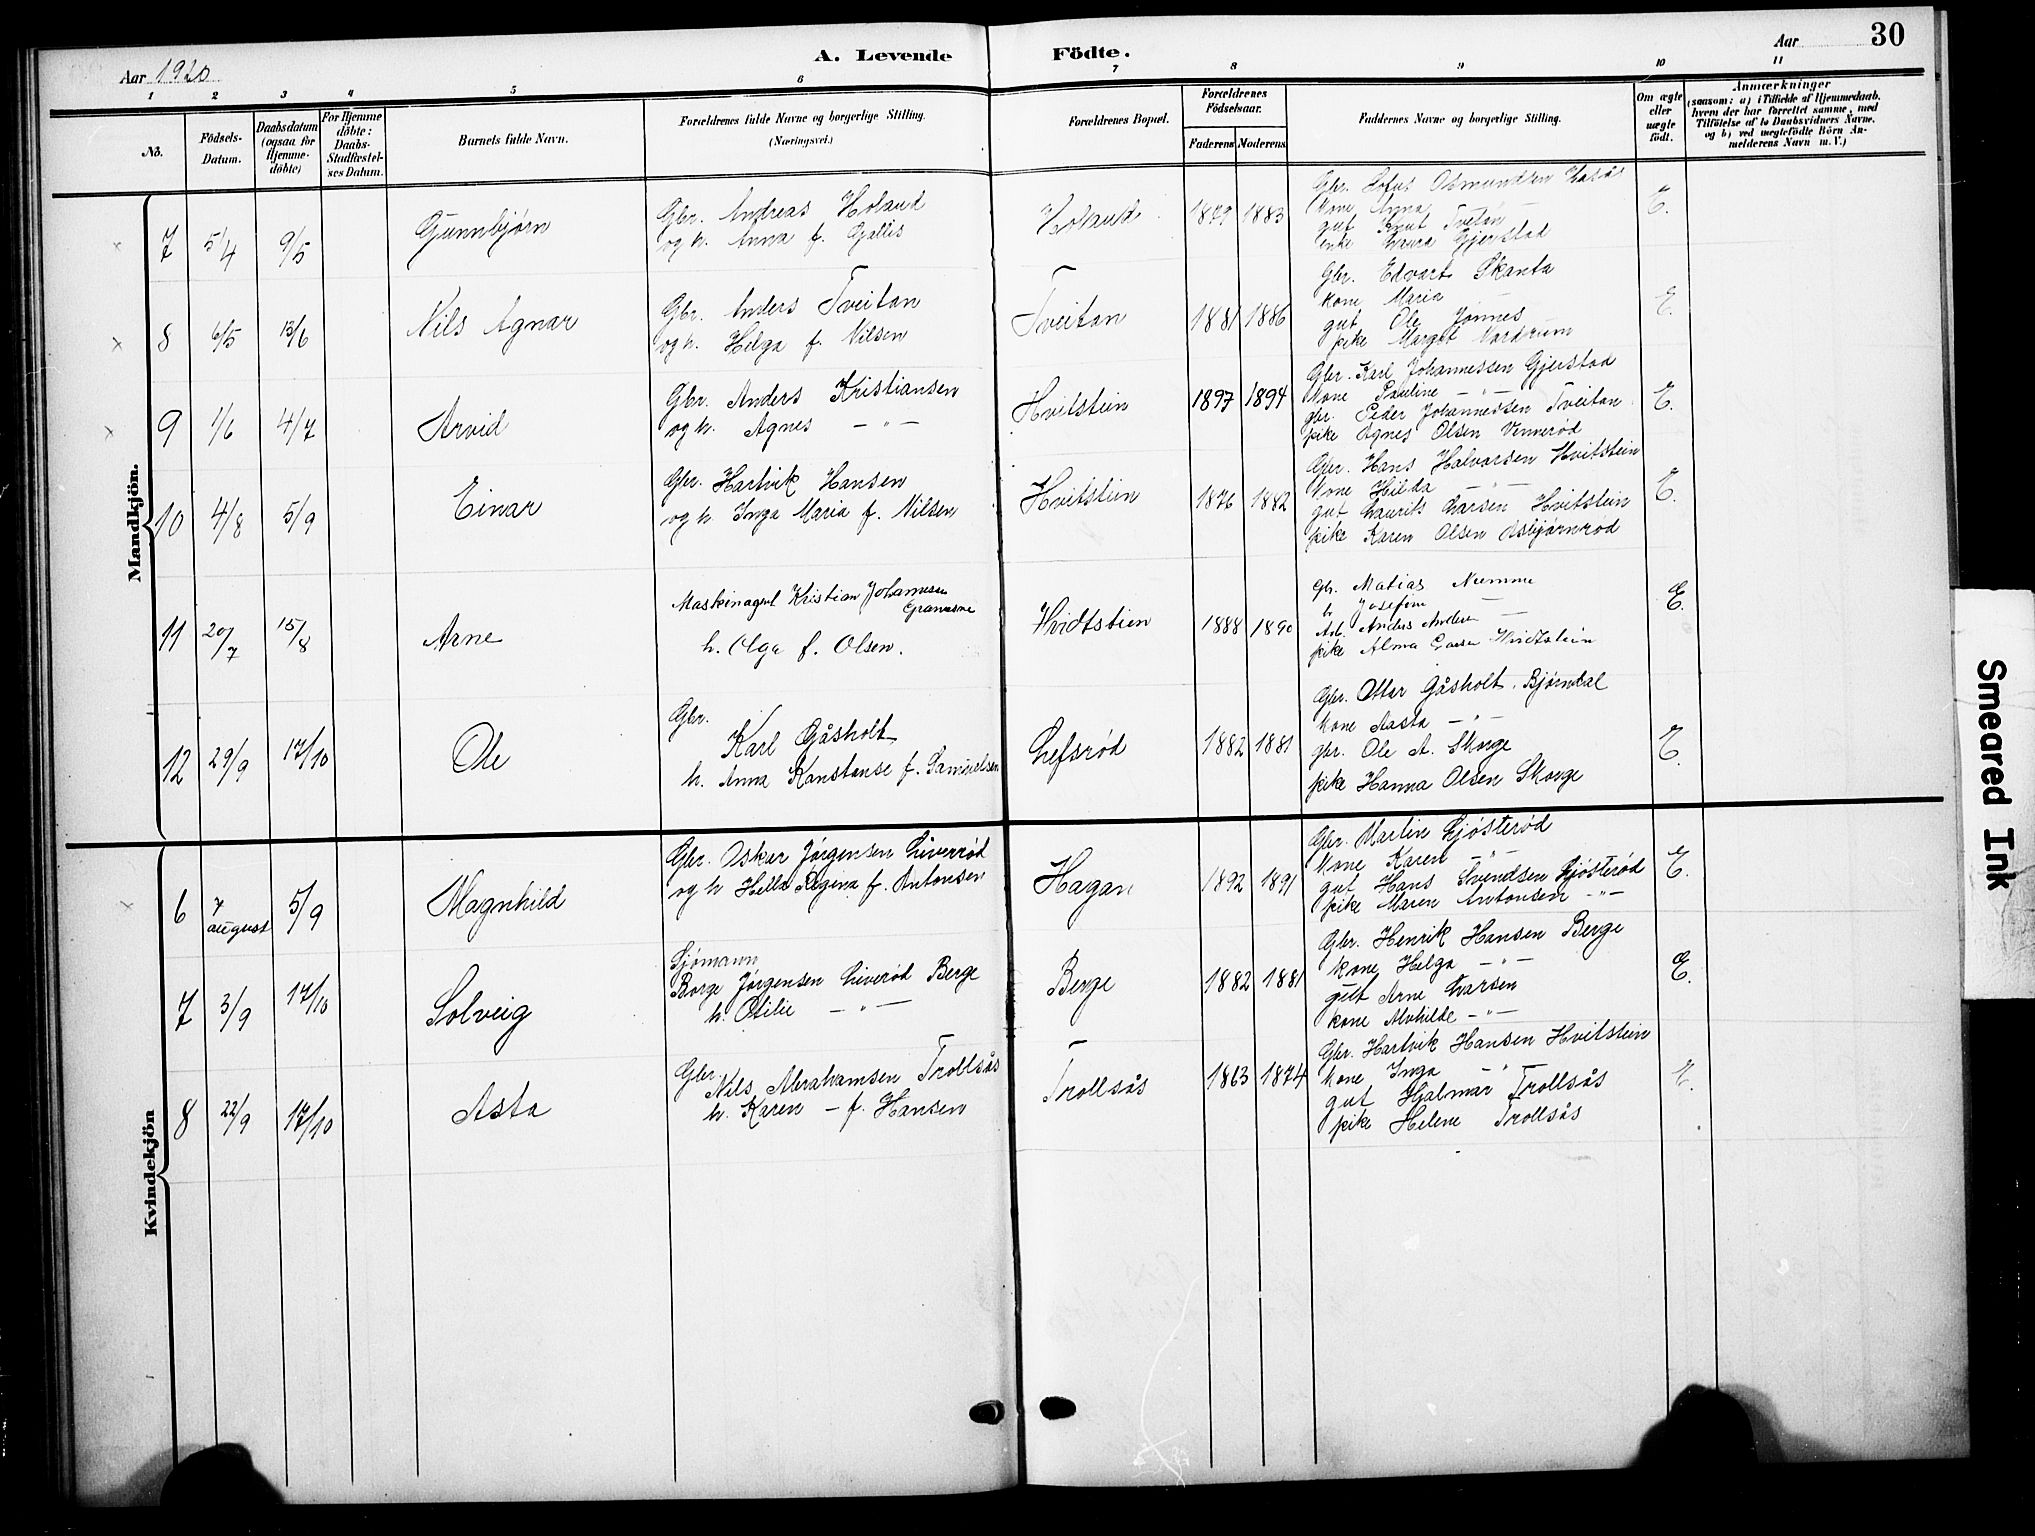 30
A. Levende Födte.
Aar 1920
Aar
1 2 3 4 5 6 7 8 9 10 11
No.
Födsels-Datum.
Daabsdatum (ogsaa for Hjemmedöbte)
For Hjemmedöbte: Daabs-Stadfæstelses Datum.
Barnets fulde Navn.
Forældrenes fulde Navne og borgerlige Stilling.
(Næringsvei.)
Forældrenes Bopæl.
Forældrenes Födselsaar.
Faderens Moderens
Faddernes Navne og borgerlige Stilling.
Om ægte eller uægte födt.
Anmærkninger
(saasom: a) i Tilfælde af Hjemmedaab, hvem der har forrettet samme, med Tilföielse af to Daabsvidners Navne, og b) ved uægtefödte Börn Anmelderens Navn m. V.)
Mandkjön.
7 5/4 9/5 Gunnbjørn
Gbr. Andreas Holand
og h. Anna f. Gjellis
Holand 1879 1883
Gbr. Sofus Osmundsen
Kone Anna
gut Knut Tveitan
enke Laura Gjerstad
E.
8 6/5 13/6 Nils Agnar
Gbr. Anders Tveitan
og h. Helga f. Nilsen
Tveitan 1881 1886
Gbr. Edvart Skanta
Kone Maria
gut Ole Jønnes
pike Margot Vardrum
E.
9 1/6 4/7 Arvid
Gbr. Anders Kristiansen
og h. Agnes — " —
Hvitstein 1897 1894
Gbr. Karl Johannessen Gjerstad
Kone Pauline — " —
gbr. Peder Johannessen Tveitan
pike Agnes Olsen Vennerød
E.
10 4/8 5/9 Einar
Gbr. Hartvik Hansen
og h. Inga Maria f. Nilsen
Hvitstein 1876 1882
Gbr. Hans Halvorsen Hvitstein
Kone Hilda — " —
gut Laurits Larsen Hvitstein
pike Karen Olsen Asbjørnrød
E.
11 20/7 15/8 Arne
Maskinagent Kristian Johannesen
h. Olga f. Olsen.
Hvidtstien 1888 1890
Gb. Matias Numme
h. Josefine —
Arb. Anders Anders
pike Alma Larsen Hvidtstein
E.
12 29/9 17/10 Ole
Gbr.
Karl Gåsholt
h. Anna Konstanse f. Samuelsen
Lefsrød 1882 1881
Gbr. Ottar Gåsholt. Bjørndal
Kone Aasta — " —
gbr. Ole A. Skorge
pike Hanna Olsen Skorge
E.
Kvindekjön
6 7 august 5/9 Magnhild
Gbr. Oskar Jørgensen Liverød
og h Hella Regina f. Antonsen
Hagan 1892 1891
Gbr. Martin Ljøsterød
Kone Karen — " —
gut Hans Svendsen Ljøsterød
pike Maren Antonsen — " —
E.
7 3/9 17/10 Solveig
Sjømann
Borge Jørgensen Liverød Berge
h. Otilie — " —
Berge 1882 1881
Gbr. Henrik Hansen Berge
Kone Helga — " —
gut Arne Larsen
Kone Alvhilde — " —
E.
8 22/9 17/10 Asta
Gbr.
Nils Abrahamsen Trollsås
h. Karen — f. Hansen
Trollsås 1863 1874
Gbr. Hartvik Hansen Hvitstein
Kone Inga — " —
gut Hjalmar Trollsås
pike Helene Trollsås
E.
Smeared Ink